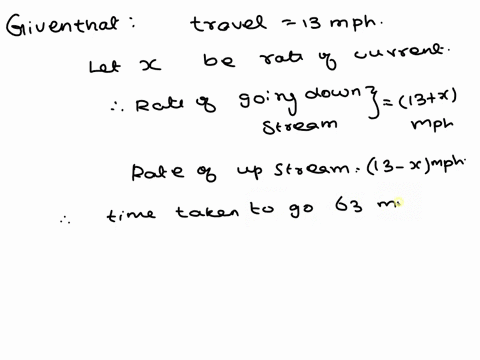 Giventhat: travel = 13 mph.
Let x be rate of current.
∴ Rate of going down } = (13+x)
stream mph
Rate of up stream = (13-x) mph.
∴ time taken to go 63 m